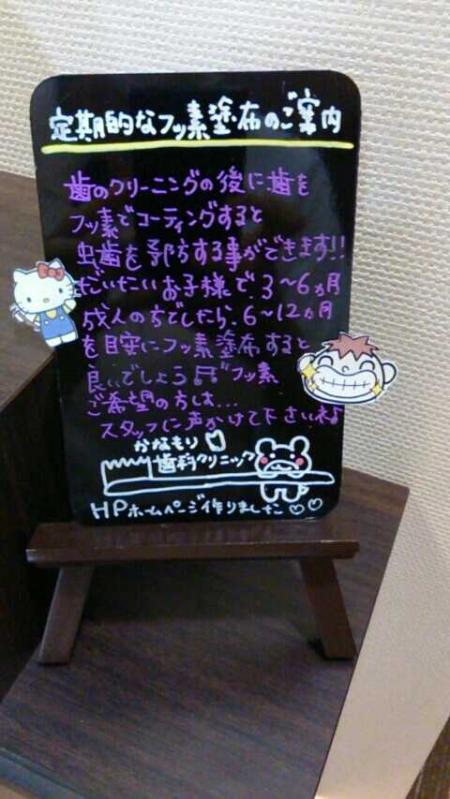 定期的なフッ素塗布のご案内
歯のクリーニングの後に歯を
フッ素でコーティングすると
虫歯を予防する事ができます!!
だいたいお子様で、3~6ヵ月
成人の方でしたら、6~12ヵ月
を目安にフッ素塗布すると
良いでしょう フッ素
ご希望の方は...
スタッフに声かけて下さいね♪
かなもり
歯科クリニック
HPホームページ作りました♡♡